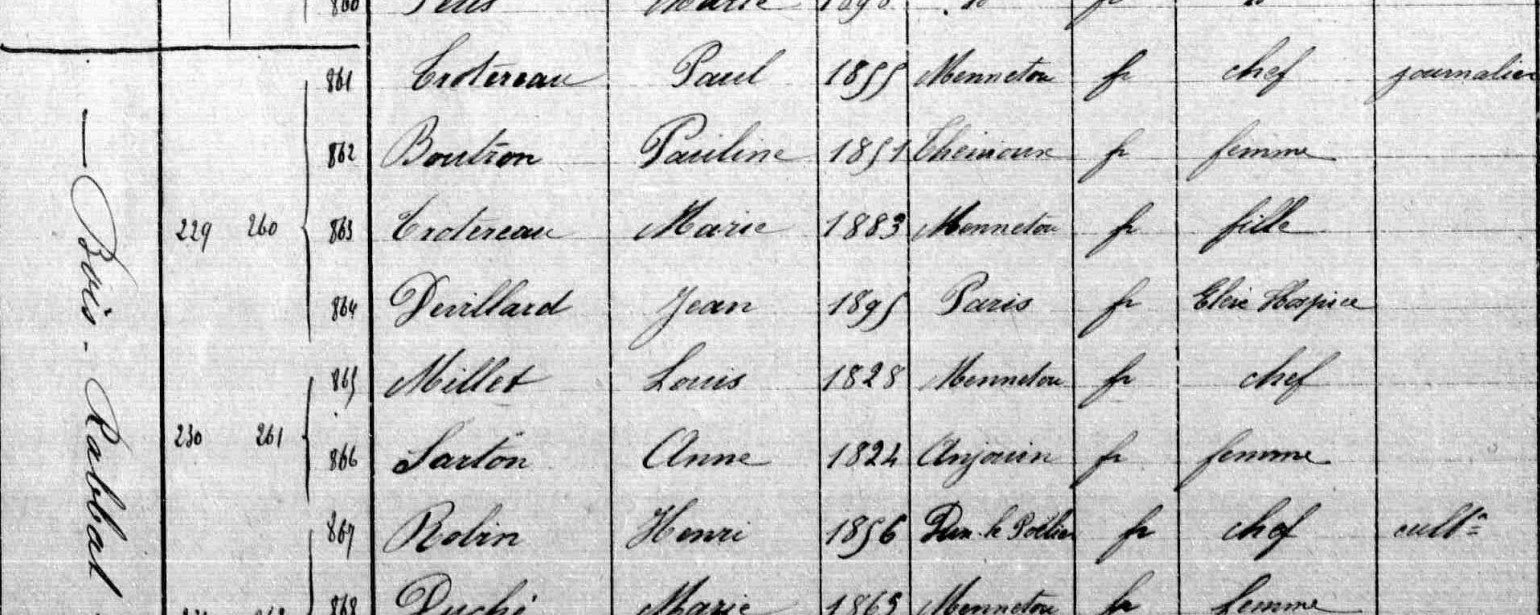 860 Marie 1898 fr
861 Crotereau Paul 1855 Mennetou fr chef journalier
862 Boutron Pauline 1851 Thenioux fr femme
229 260 863 Crotereau Marie 1883 Mennetou fr fille
864 Devillard Jean 1895 Paris fr Elève Hospice
865 Millet Louis 1828 Mennetou fr chef
230 261 866 Sarton Anne 1824 Anjouin fr femme
867 Robin Henri 1856 Dun-le-Poëlier fr chef cultr
868 Duché Marie 1865 Mennetou fr femme
— Bois - Rabbat